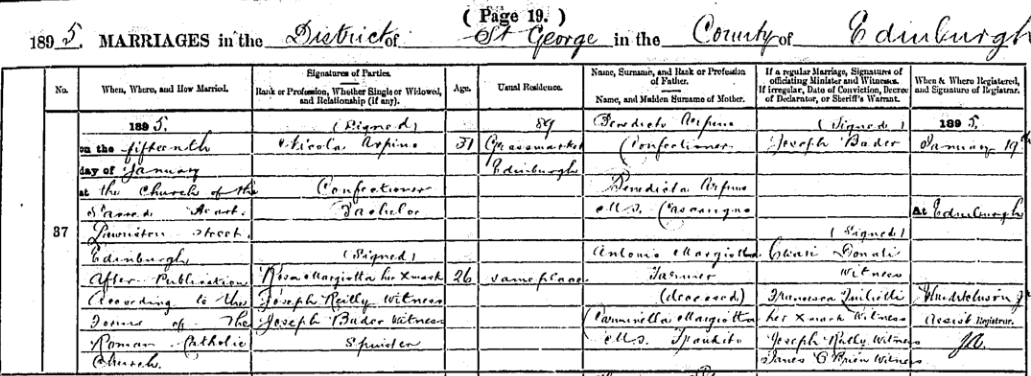 ( Page 19. )
1895. MARRIAGES in the District of St George in the County of Edinburgh
No.
When, Where, and How Married.
Signatures of Parties.
Rank or Profession, Whether Single or Widowed, and Relationship (if any).
Age.
Usual Residence.
Name, Surname, and Rank or Profession of Father.
Name, and Maiden Surname of Mother.
If a regular Marriage, Signatures of officiating Minister and Witnesses.
If irregular, Date of Conviction, Decree of Declarator, or Sheriff's Warrant.
When & Where Registered, and Signature of Registrar.
37
1895.
on the fifteenth
day of January
at the Church of the
Sacred Heart.
Lauriston Street.
Edinburgh
After Publication
According to the
Forms of the
Roman Catholic
Church.
(Signed)
Nicola Arpino
Confectioner
Bachelor
(Signed)
Rosa Margiotta her X mark
Joseph Reilly witness
Joseph Bader witness
Spinster
31
26
89
Grassmarket
Edinburgh
same place
Benedicto Arpino
(Confectioner
Benedicta Arpino
M.S.
Antonio Margiotta
Farmer
(deceased)
Carminella Margiotta
M.S.
(Signed)
Joseph Bader
(Signed)
Donati
witness
Francesca
her X mark witness
Joseph Reilly Witness
James O'Brien witness
1895.
January 19th
At Edinburgh
Assist Registrar.